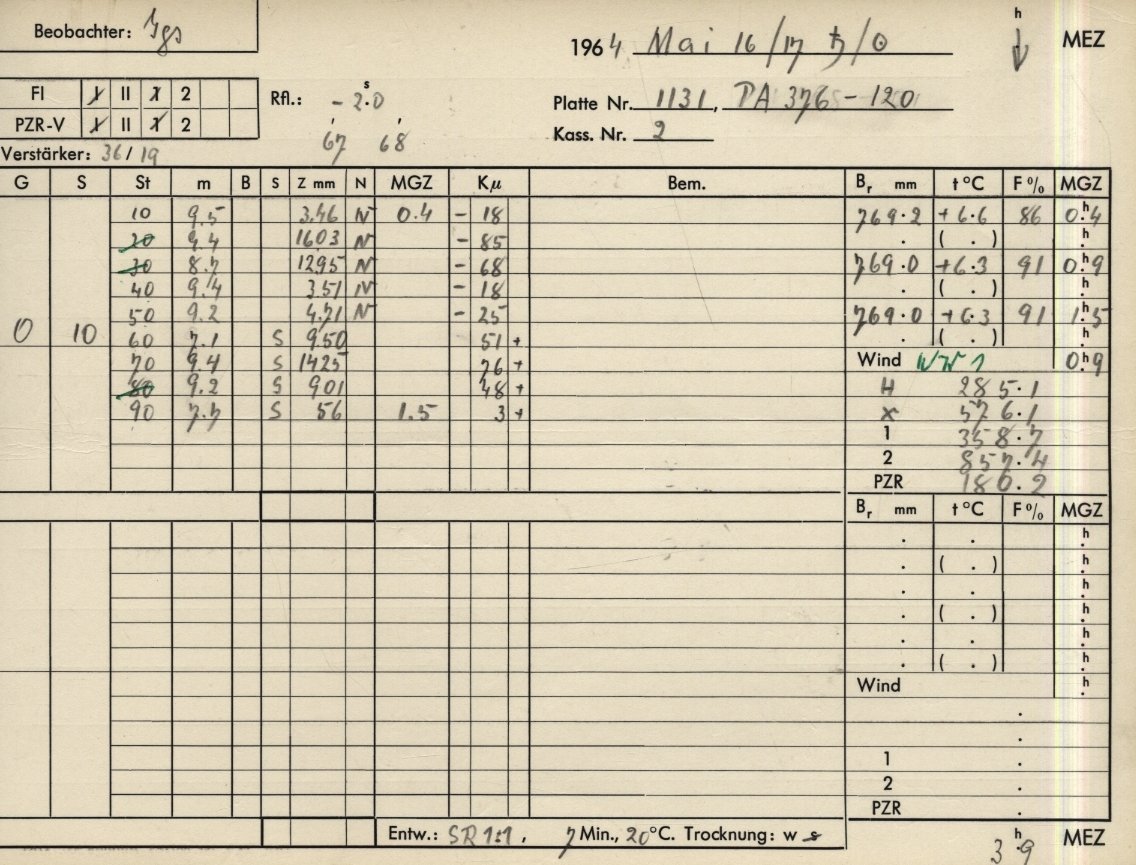 Beobachter: Jgs
1964 Mai 16/17 ♄/⊙ h ↓ MEZ
FI I II 1 2
PZR-V I II 1 2
Rfl.: -2.0 s
67 68
Platte Nr. 1131, PA 376-120
Kass. Nr. 2
Verstärker: 36/19
G S St m B S Z mm N MGZ Kμ Bem. Br mm t °C F % MGZ
10 9.5 3.46 N 0.4 - 18 769.2 +6.6 86 0.h4
20 9.4 1603 N - 85 . ( . ) .h
30 8.7 1295 N - 68 769.0 +6.3 91 0.h9
40 9.4 3.51 N - 18 . ( . ) .h
50 9.2 4.71 N - 25 769.0 +6.3 91 1.h5
0 10 60 7.1 S 950 51 + . ( . ) .h
70 9.4 S 1425 76 + Wind WW 1 0.h9
80 9.2 S 901 48 + H 285.1
90 7.7 S 56 1.5 3 + x 576.1
1 358.7
2 857.4
PZR 180.2
Br mm t °C F % MGZ
. . h
. ( . ) h
. . h
. ( . ) h
. . h
. ( . ) h
Wind h
.
.
1 .
2 .
PZR .
Entw.: SR 1:1, 7 Min., 20 °C. Trocknung: w s 3.h9 MEZ